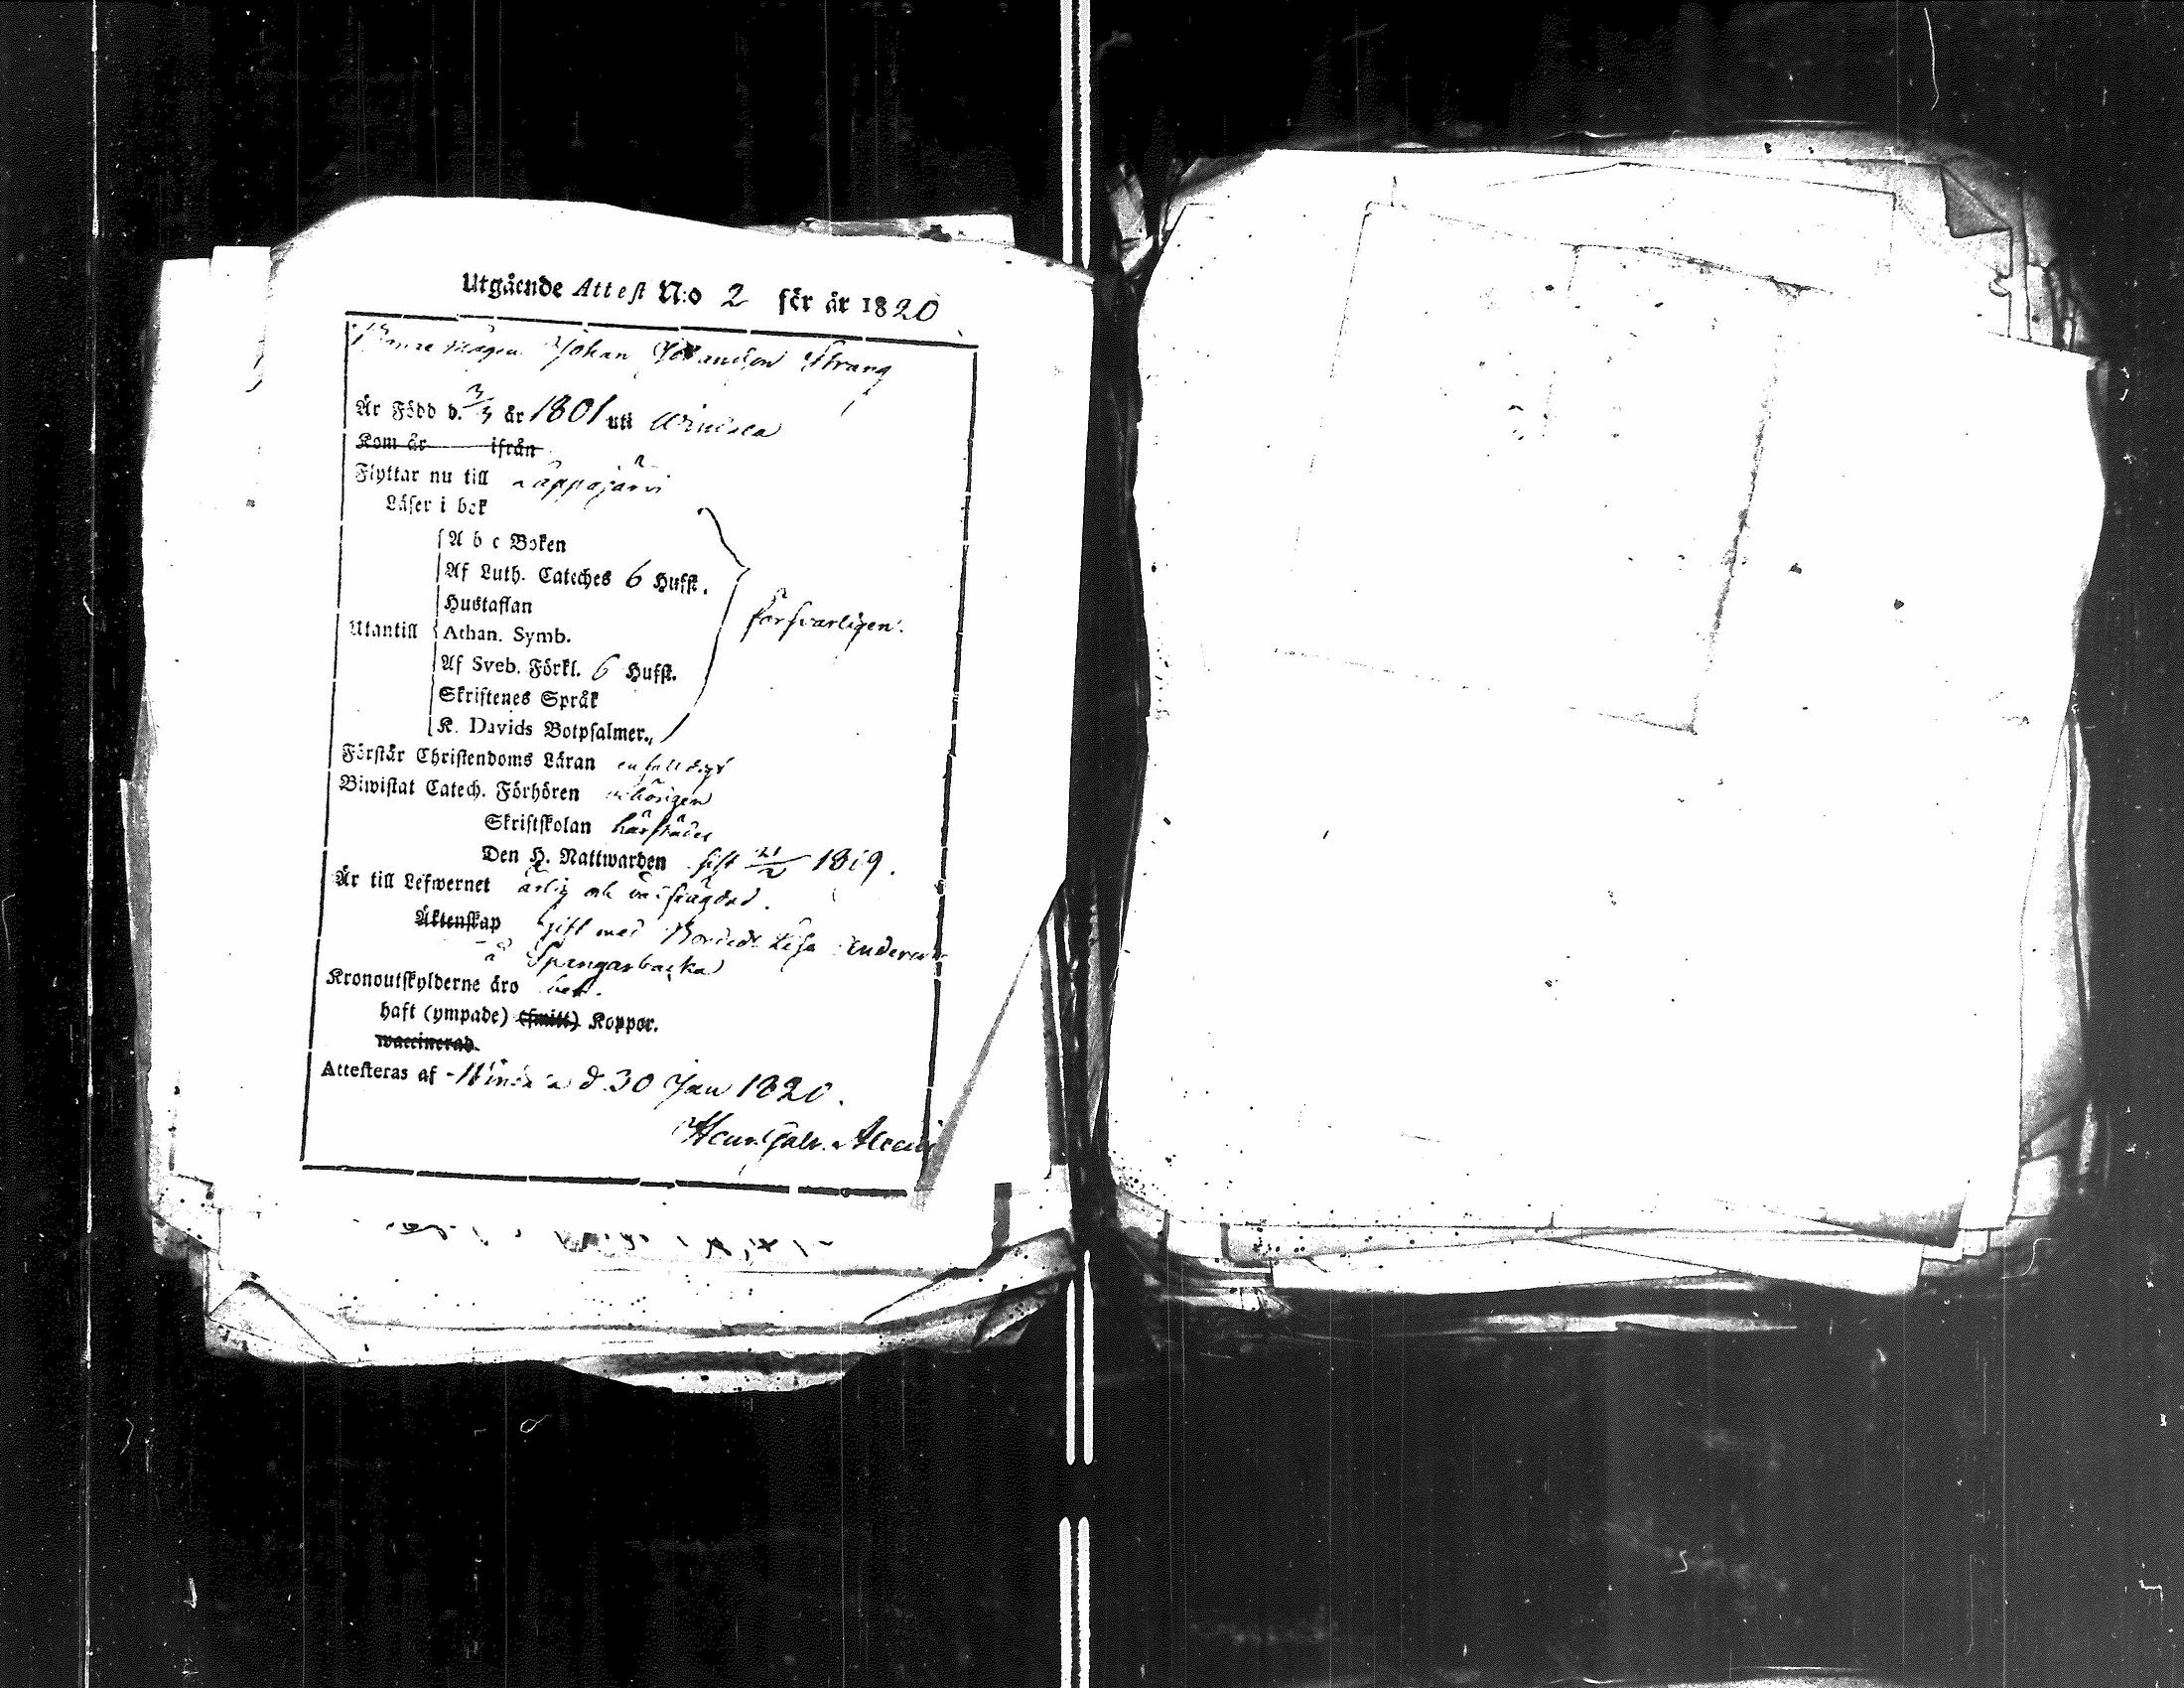 Utgående Attest N:o 2 för år 1820
Johan Johansson Strang
Är Född d. 3/3 år 1801 uti Windala
Kom år ifrån
Flyttar nu till Lappajärvi
Läser i bok
A b c Boken
Af Luth. Cateches 6 Hufst.
Hustaflan
Utantill Athan. Symb. försvarligen.
Af Sveb. Förkl. 6 Hufst.
Skriftenes Språk
K. Davids Botpsalmer.
Förstår Christendoms Läran enfalldigt
Biwistat Catech. Förhören behörigen
Skriftskolan härstädes
Den H. Nattwarden sist 21/2 1819.
Är till Lefwernet ärlig och välfrägdad.
Äktenskap gift med Lisa Anders
å Spangarbacka
Kronoutskylderne äro bet.
haft (ympade) (smitt) Koppor.
waccinerad.
Attesteras af Windala d. 30 Jan 1820.